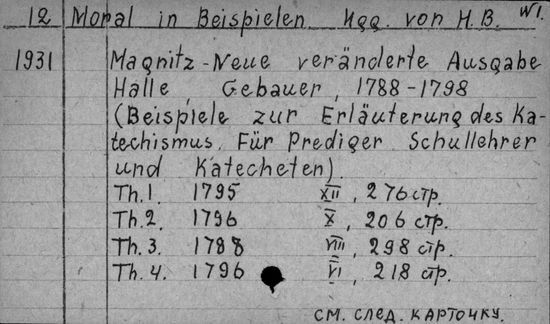 12 Moral in Beispielen. Hgg. von H.B. W1.
1931 Magnitz-Neue veränderte Ausgabe
Halle, Gebauer, 1788-1798
(Beispiele zur Erläuterung des Ka-
techismus. Für Prediger Schullehrer
und Katecheten).
Th.1. 1795 XII, 276 стр.
Th.2. 1796 X, 206 стр.
Th.3. 1788 VIII, 298 стр.
Th.4. 1796 VI, 218 стр.
см. след. карточку.